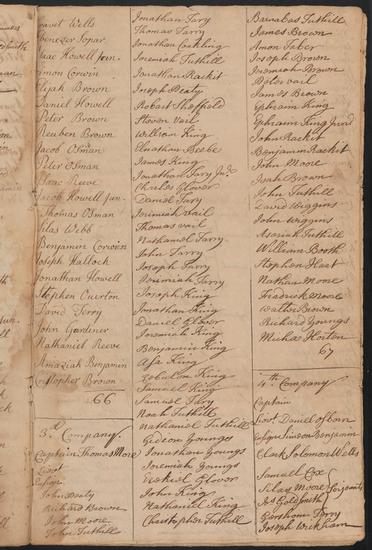 Wells
Ebenezer Soper
Isaac Howell Jun
Simon Corwin
Elijah Brown
Daniel Howell
Peter Brown
Reuben Brown
Jacob Osman
Peter Osman
Isaac Reeve
Jacob Howell Jun
Thomas Osman
Silas Webb
Benjamin Corwin
Joseph Hallock
Jonathan Howell
Stephen Overton
David Terry
John Gardiner
Nathaniel Reeve
Amaziah Benjamin
Cristopher Brown
66
3d Company
Captain Thomas More
Lieut
Ensign
John Beaty
Richard Brown
John Moore
John Tuthill
Jonathan Tary
Thomas Tarry
Jonathan Conkling
Jeremiah Tuthill
Jonathan Rackit
Joseph Beaty
Robart Sheffeld
Steven vail
William King
Elnathan Beebe
James King
Jonathan Tary Jur
Charles Glover
Daniel Tary
Jerimiah vail
Thomas vail
Nathaniel Tarry
John Tarry
Joseph Tarry
Jeremiah Tary
Joseph King
Jonathan King
Daniel Glover
Jeremiah King
Benjamin King
Asa King
Zebulon King
Samuel King
Samuel Tary
Noah Tuthill
Nathaniel Tuthill
Gideon Youngs
Jonathan Youngs
Jeremiah Youngs
Ezekiel Glover
John King
Nathaniel King
Christopher Tuthill
Barnabas Tuthill
James Brown
Amon Taber
Joseph Brown
Jeremiah Brown
Peter vail
James Brown
Ephraim King
Ephraim King Jun
John Rackit
Benjamin Rackit
John Moore
Brown
John Tuthill
David Wiggins
John Wiggins
Azariah Tuthill
William Booth
Stephen
Nathan Moore
Fredrick Moore
Walter Brown
Richard Youngs
Micha Horton
67
4th Company
Captain
Lieut Daniel Osborn
Ensign Simeon Benjamin
Clark Solomon Wells
Samuell Cox
Silas Moore
Goldsmith Serjants
Gershom Terry
Joseph Wickham